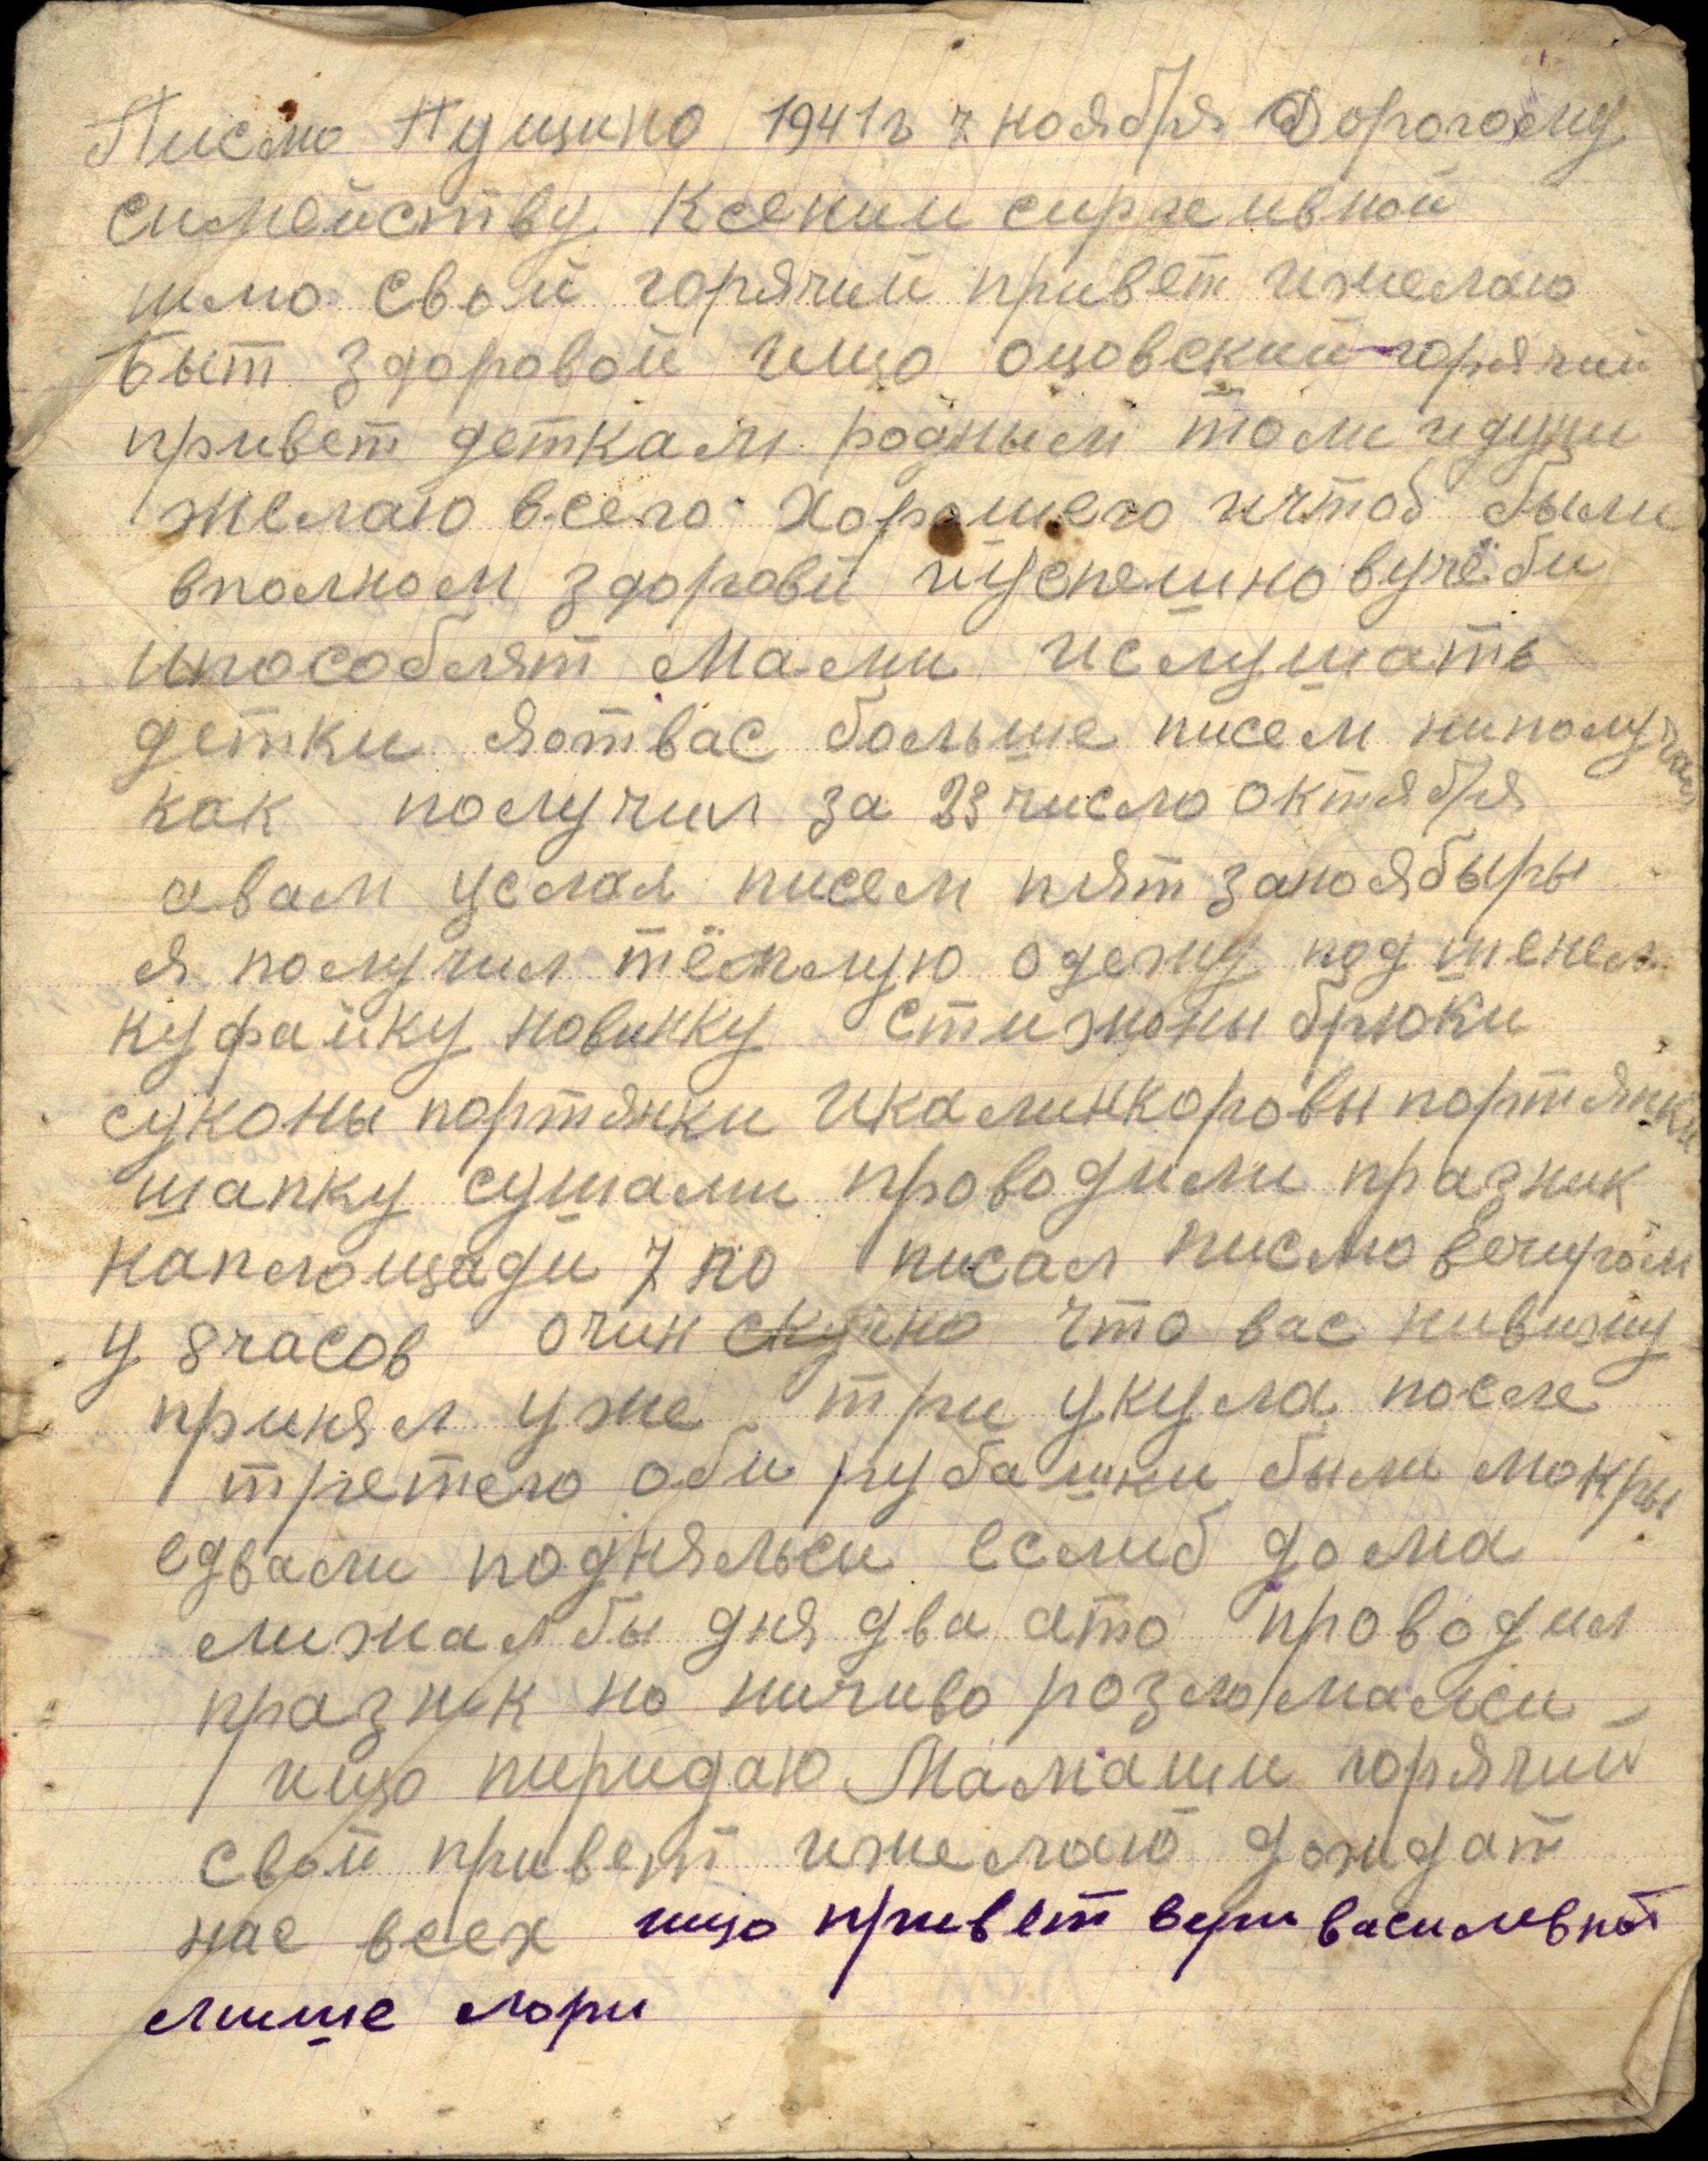 Писмо Пущино 1941г 7 ноября Дорогому
симейству Ксении сиргеивной
шлю свой горячий привет ижелаю
быт здоровой ищо оцовский горячий
привет деткам родным толи идуни
желаю всего хорошего ичтоб были
вполном здоровй иуспешно вучёби
ипособлят мами ислушать
детки яотвас больше писем ниполучал
как получил за 23 число октября
авам услал писем пят заноябыры
я получил тёплую одежу под шенел
куфайку новинку стижоны брюки
суконы портянки икалинкоровы портянки
шапку сушами проводили празник
наплощади 7 но писал писмо вечиром
у 8часов очин скучно что вас нивижу
принял уже три укула после
третего оби рубашки были мокры
едвали подняльси еслиб дома
лижалбы дня два ато проводил
празник но ничиво розломалси
ищо пиридаю Мамаши горячий
свой привет ижелаю дождат
нас всех ищо привет вери василевной
лише лори